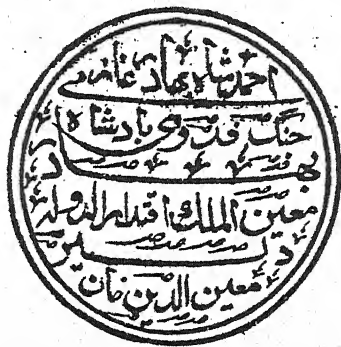 احمد شاه بهادر غازی
جنگ فدوی بادشاه
بهادر
معین الملک اقتدار الدوله
دلیر
معین الدین خان